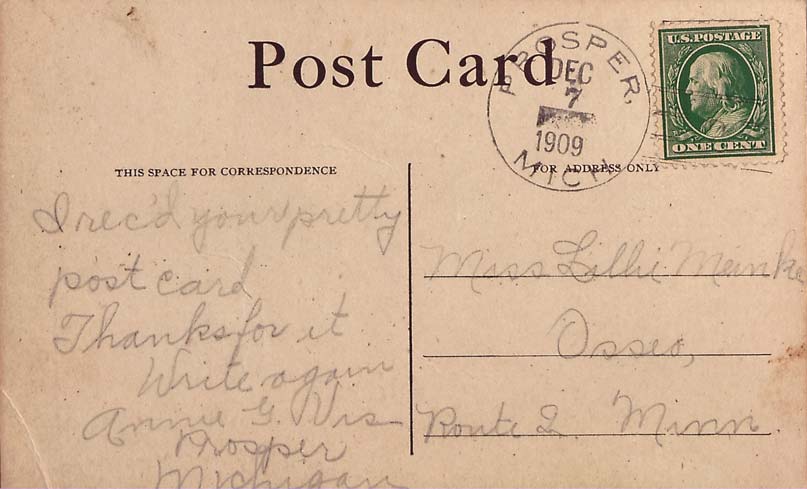 Post Card
PROSPER,
DEC
7
1909
MICH
U.S. POSTAGE
ONE CENT
THIS SPACE FOR CORRESPONDENCE
FOR ADDRESS ONLY
I rec'd your pretty
post card
Thanks for it
Write again
Annie G. Vis
Prosper
Michigan
Miss Lillie Meinke
Osseo,
Route 2. Minn.